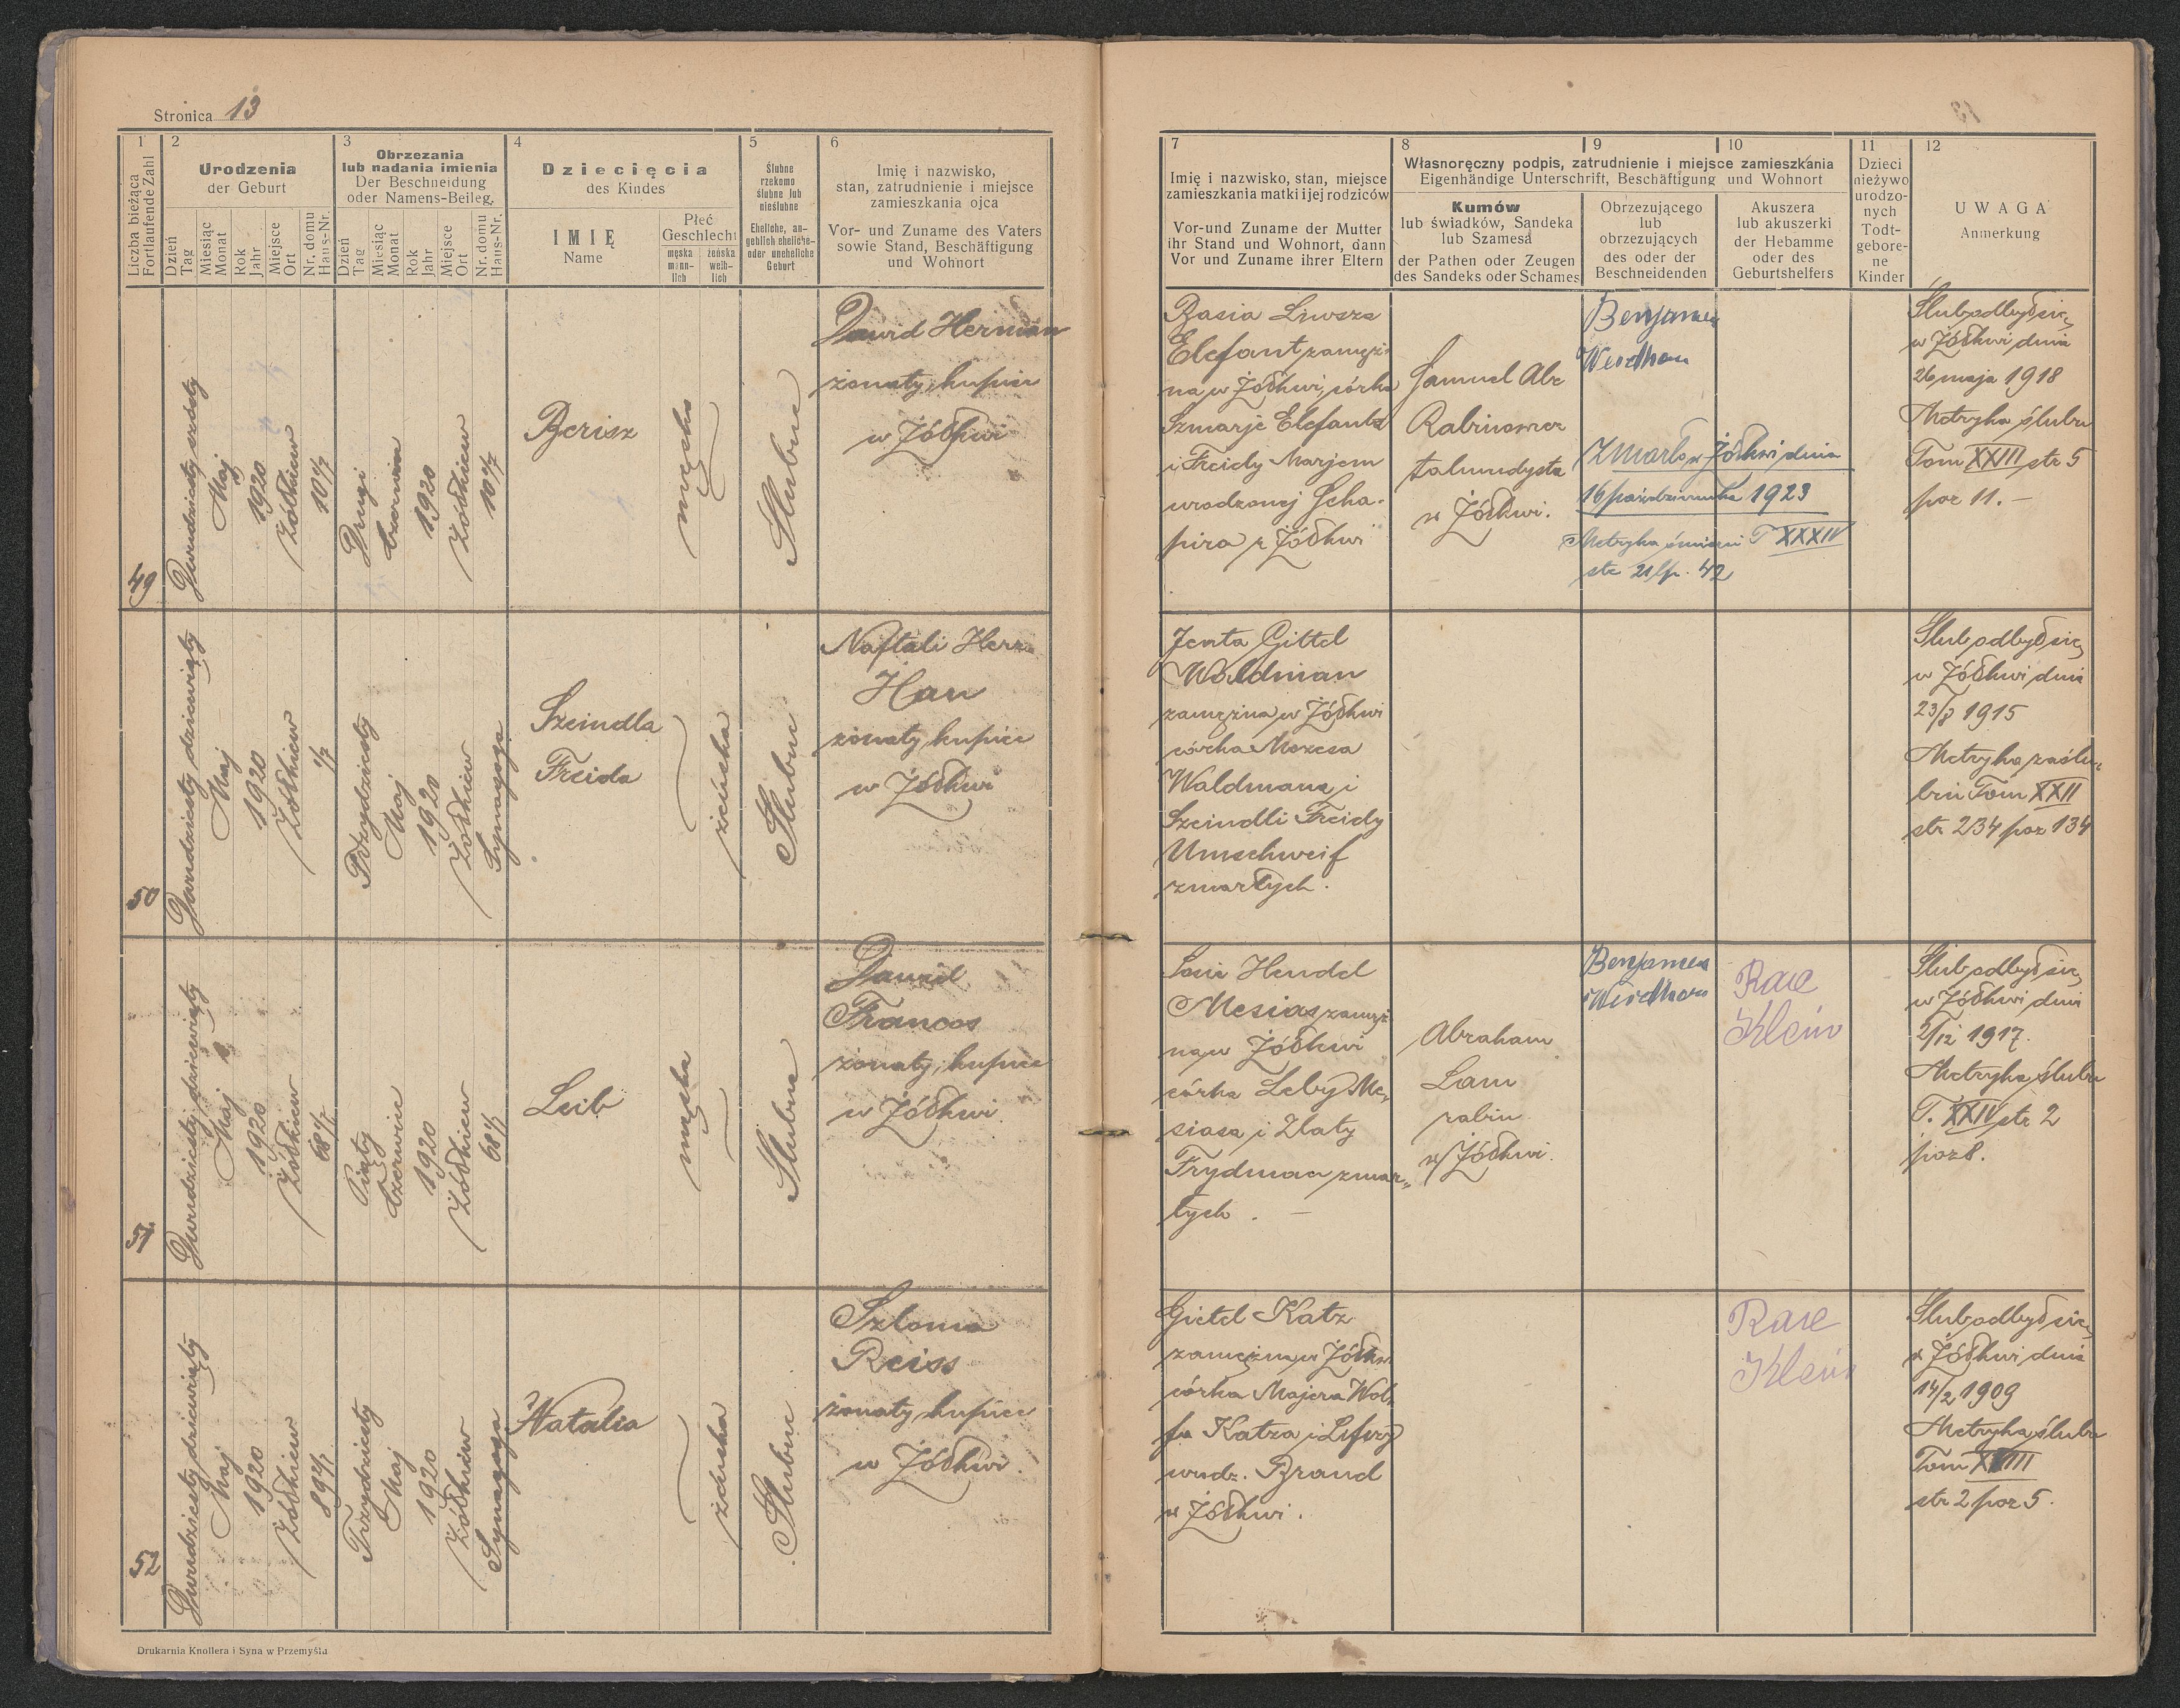 Stronica 13
1
Liczba bieżąca
Fortlaufende Zahl
2
Urodzenia
der Geburt
Dzień
Tag
Miesiąc
Monat
Rok
Jahr
Miejsce
Ort
Nr. domu
Haus-Nr.
3
Obrzezania
lub nadania imienia
Der Beschneidung
oder Namens-Beileg.
Dzień
Tag
Miesiąc
Monat
Rok
Jahr
Miejsce
Ort
Nr. domu
Haus-Nr.
4
Dziecięcia
des Kindes
IMIĘ
Name
Płeć
Geschlecht
męska
männ-
lich
żeńska
weib-
lich
5
Ślubne
rzekomo
ślubne lub
nieślubne
Eheliche, an-
geblich eheliche-
oder uneheliche
Geburt
6
Imię i nazwisko,
stan, zatrudnienie i miejsce
zamieszkania ojca
Vor- und Zuname des Vaters
sowie Stand, Beschäftigung
und Wohnort
7
Imię i nazwisko, stan, miejsce
zamieszkania matki i jej rodziców
Vor- und Zuname der Mutter
ihr Stand und Wohnort, dann
Vor und Zuname ihrer Eltern
8
9
10
Własnoręczny podpis, zatrudnienie i miejsce zamieszkania
Eigenhändige Unterschrift, Beschäftigung und Wohnort
Kumów
lub świadków, Sandeka
lub Szamesa
der Pathen oder Zeugen
des Sandeks oder Schames
Obrzezującego
lub
obrzezujących
des oder der
Beschneidenden
Akuszera
lub akuszerki
der Hebamme
oder des
Geburtshelfers
11
Dzieci
nieżywo
urodzo-
nych
Todt-
gebore-
ne
Kinder
12
UWAGA
Anmerkung
49
Dwudziesty szósty
Maj
1920
Żółkiew
Drugi
Czerwca
1920
Żółkiew
Berisz
męska
Ślubne
Dawid Herman
żonaty, kupiec
w Żółkwi
Basia
Elefant zamęż-
na w Żółkwi, córka
Szmarje Elefanta
i Freidy Marjem
urodzonej Scha-
pira z Żółkwi
Samuel Abe
talmudysta
w Żółkwi.
Benjamin
Zmarł w Żółkwi dnia
16 października 1923
Metryka śmierci T XXXIV
str 21 lp. 42
Ślub odbył się
w Żółkwi dnia
26 maja 1918
Metryka ślubu
Tom XXIII str 5
poz 11. –
50
Dwudziesty dziewiąty
Maj
1920
Żółkiew
Maj
1920
Żółkiew
Synagoga
Szeindla
Freida
żeńska
Ślubne
Naftali Herz
Hau
żonaty, kupiec
w Żółkwi
Jenta Gittel
Waldman
zamężna w Żółkwi
córka Mozesa
Waldmana i
Szeindli Freidy
Umschweif
zmarłych.
Ślub odbył się
w Żółkwi dnia
23/8 1915
Metryka zaślu-
bin Tom XXII
str 234 poz 134
51
Dwudziesty dziewiąty
Maj
1920
Żółkiew
Piąty
Czerwiec
1920
Żółkiew
Leib
męska
Ślubne
Dawid
Francos
żonaty, kupiec
w Żółkwi
Hendel
Mesias zamęż-
na w Żółkwi
córka Leby Me-
siasa i Zlaty
Frydman zmar-
łych. –
Abraham
Lam
rabin
w Żółkwi.
Benjamin
Rose
Klein
Ślub odbył się
w Żółkwi dnia
2/12 1917.
Metryka ślubu
T. XXIV str 2
poz 8.
52
Dwudziesty dziewiąty
Maj
1920
Żółkiew
Trzydziesty
Maj
1920
Żółkiew
Synagoga
Natalia
żeńska
Ślubne
Szloma
Reiss
żonaty, kupiec
w Żółkwi.
Gietel Katz
zamężna w Żółkwi
córka Majera Wol-
fa Katza i
urodz. Brand
w Żółkwi.
Rose
Klein
Ślub odbył się
w Żółkwi dnia
14/2 1909
Metryka ślubu
Tom
str 2 poz 5.
Drukarnia Knollera i Syna w Przemyślu